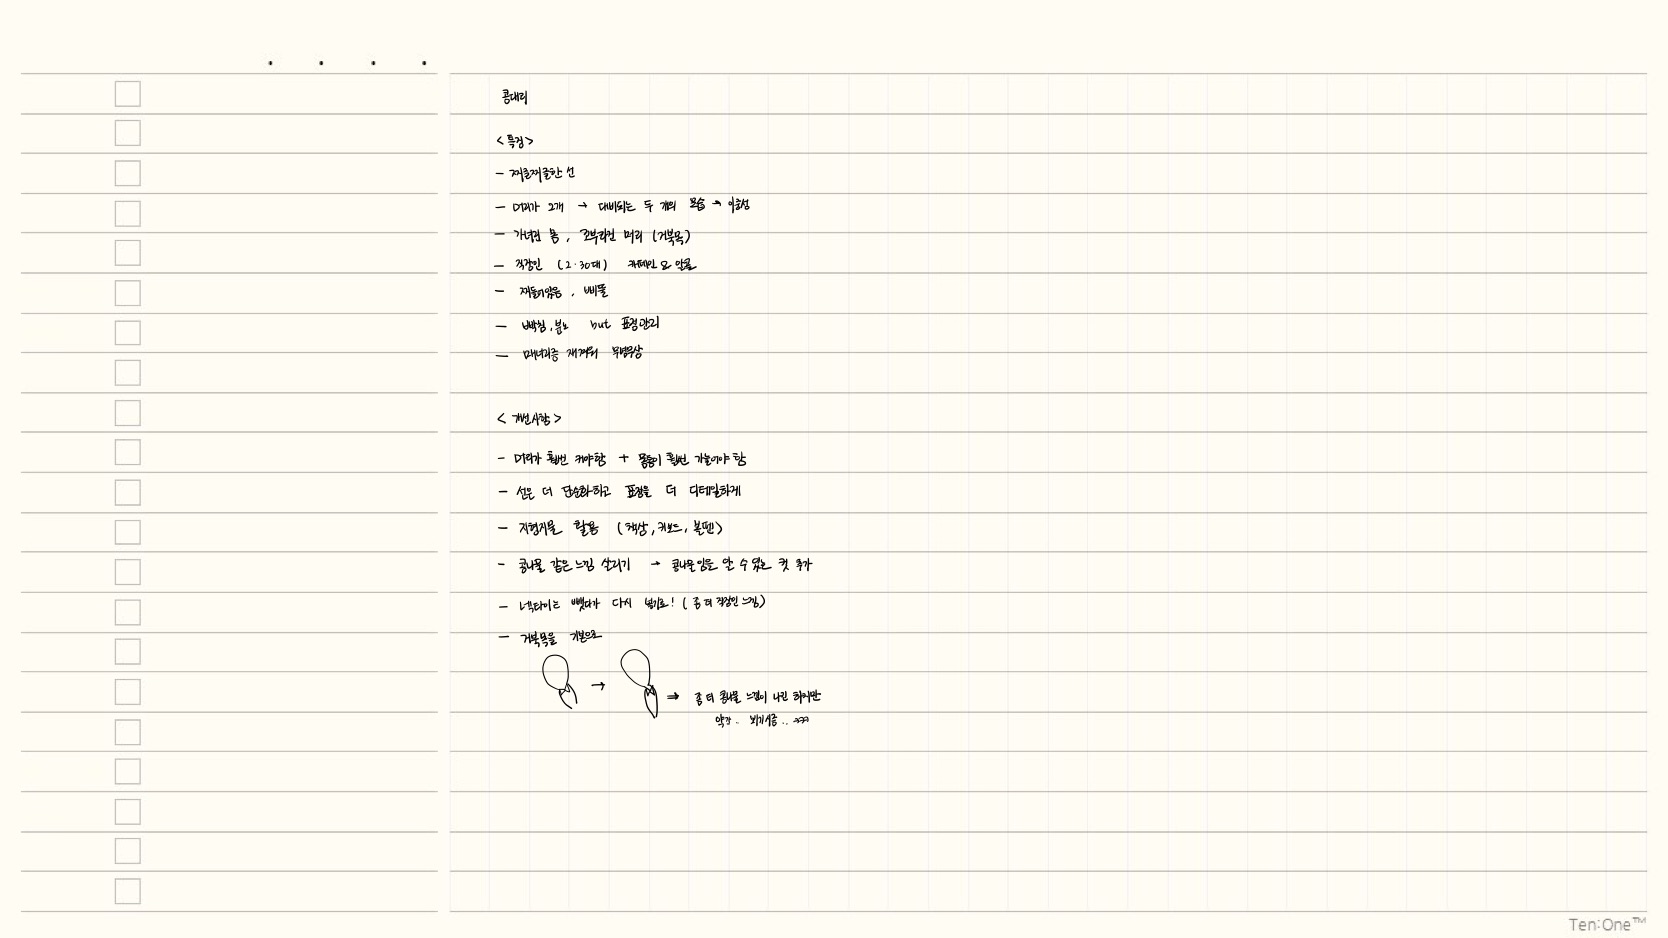 콩대리
<특징>
- 찌글찌글한 선
- 머리가 2개 → 대비되는 두 개의 모습 → 이중성
- 가녀린 몸, 꼬부라진 머리 (거북목)
- 직장인 (2·30대) 카페인 요 인물
- 찌들어있음, 삐뚤
- 빡침, 분노 but 표정관리
- 매너리즘 재껴리 무념무상
<개선사항>
- 머리가 훨씬 커야함 + 몸통이 훨씬 가늘어야 함
- 선은 더 단순화하고 표정을 더 디테일하게
- 지형지물 활용 (책상, 키보드, 볼펜)
- 콩나물 같은 느낌 살리기 → 콩나물임을 알 수 있는 컷 추가
- 넥타이는 뺐다가 다시 넣기로! (좀 더 직장인 느낌)
- 거북목을 기본으로
→ ⇒ 좀 더 콩나물 느낌이 나긴 하지만
약간.. 뵈기시름..
Ten:One™